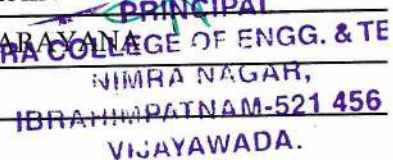 PRINCIPAL
ARAYANA
RA COLLEGE OF ENGG. & TE
NIMRA NAGAR,
IBRAHIMPATNAM-521 456
VIJAYAWADA.